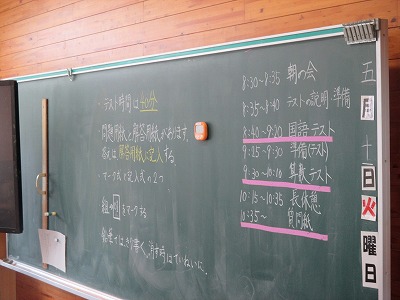 ・テスト時間は40分
・問題用紙と解答用紙があります。
答えは解答用紙に記入する。
・マーク式と記入式の2つ
組 をマークする
鉛筆ではっきり書く、消す時はていねいに。
8:30~8:35 朝の会
8:35~8:40 テストの説明・準備
8:40~9:20 国語テスト
9:25~9:30 準備(テスト)
9:30~10:10 算数テスト
10:15~10:35 長休憩
10:35~ 質問紙
五月十一日火曜日